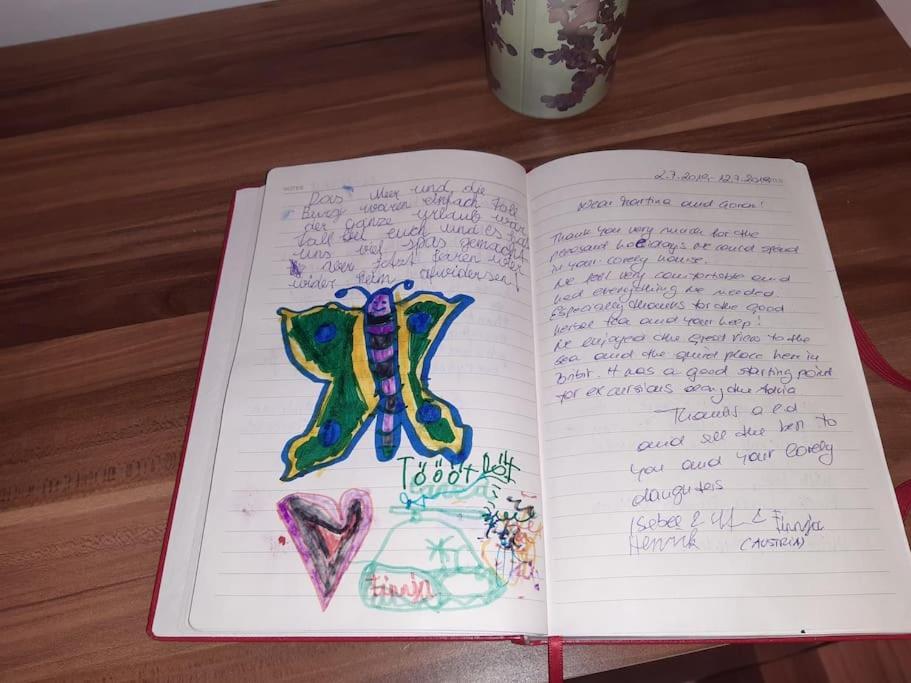 NOTES
Das Meer und die
Burg waren einfach Toll
der ganze urlaub war
Toll bei euch und es hat
uns viel spas gemacht
Jetzt faren wier
wider heim
Töööt Tööt
Finnja
2.7.2019 - 12.7.2019
Dear Martina and Goran!
Thank you very much for the
pleasand holidays we could spend
in your lovely house.
We feel very comfortable and
had everything we needed.
Especially thanks for the good
herbal tea and your help!
We enjoyed the great view to the
sea and the quiet place here in
It was a good starting point
for excursions along the Adria
Thanks a lot
and all the best to
you and your lovely
daughters
& Finnja
Henrik (AUSTRIA)